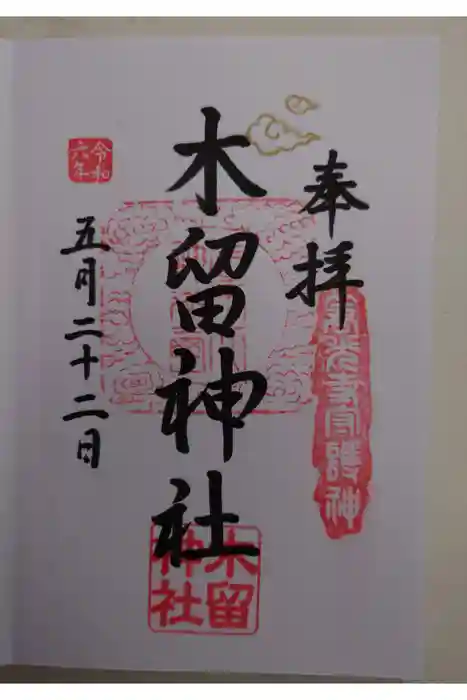 奉拝
守護神
木留神社
木留
神社
令和
六年
五月二十二日